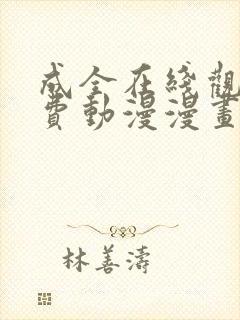 成全在綫觀
費動漫漫畫
林善濤